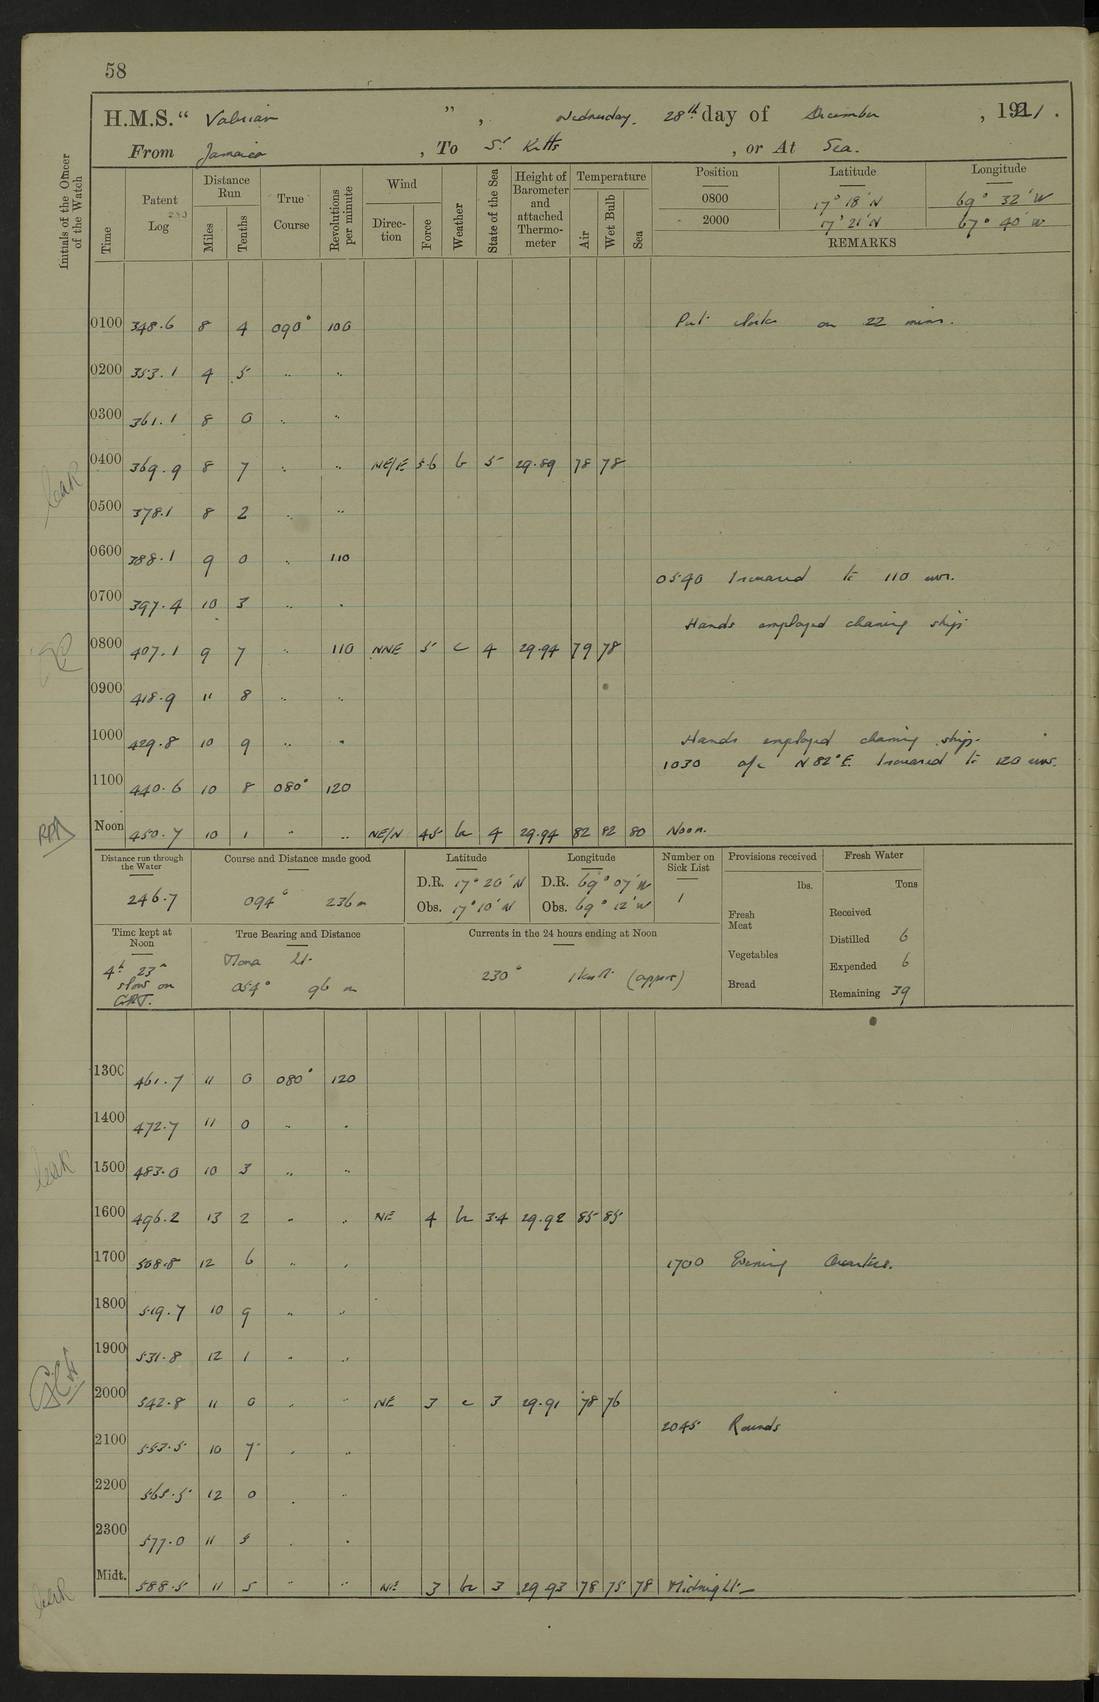 58
H.M.S. “ Valerian ” , Wednesday. 28th day of December , 1921.
From Jamaica , To St Kitts , or At Sea.
Initials of the Officer of the Watch
Time
Patent Log
Distance Run
Miles
Tenths
True Course
Revolutions per minute
Wind
Direction
Force
Weather
State of the Sea
Height of Barometer and attached Thermometer
Temperature
Air
Wet Bulb
Sea
Position Latitude Longitude
0800 17° 18' N 69° 32' W
2000 17° 21' N 67° 40' W
REMARKS
0100 348.6 8 4 090° 100 Put clocks on 22 mins.
0200 353.1 4 5 .. ..
0300 361.1 8 0 .. ..
0400 369.9 8 7 .. .. NE/E 5.6 b 5 29.89 78 78
0500 378.1 8 2 .. ..
0600 388.1 9 0 .. 110
0540 Increased to 110 revs.
0700 397.4 10 3 .. ..
Hands employed cleaning ship
0800 407.1 9 7 .. 110 NNE 5 c 4 29.94 79 78
0900 418.9 11 8 .. ..
1000 429.8 10 9 .. ..
Hands employed cleaning ship.
1030 a/c N 82° E. Increased to 120 revs.
1100 440.6 10 8 080° 120
Noon 450.7 10 1 .. .. NE/N 45 bc 4 29.94 82 82 80 Noon.
Distance run through the Water
246.7
Course and Distance made good
094° 236 m
Latitude Longitude
D.R. 17° 20' N D.R. 69° 07' W
Obs. 17° 10' N Obs. 69° 12' W
Number on Sick List
1
Provisions received
lbs.
Fresh Meat
Vegetables
Bread
Fresh Water
Tons
Received
Distilled 6
Expended 6
Remaining 39
Time kept at Noon
4h 23m
slow on
G.M.T.
True Bearing and Distance
Mona Lt.
054° 96 m
Currents in the 24 hours ending at Noon
230° 1 knot (approx)
1300 461.7 11 0 080° 120
1400 472.7 11 0 .. ..
1500 483.0 10 3 .. ..
1600 496.2 13 2 .. .. NE 4 bc 3.4 29.92 85 85
1700 508.8 12 6 .. .. 1700 Evening Quarters.
1800 519.7 10 9 .. ..
1900 531.8 12 1 .. ..
2000 542.8 11 0 .. .. NE 3 c 3 29.91 78 76
2045 Rounds
2100 553.5 10 7 .. ..
2200 565.5 12 0 .. ..
2300 577.0 11 5 .. ..
Midt. 588.5 11 5 .. .. NE 3 bc 3 29.93 78 75 78 Midnight